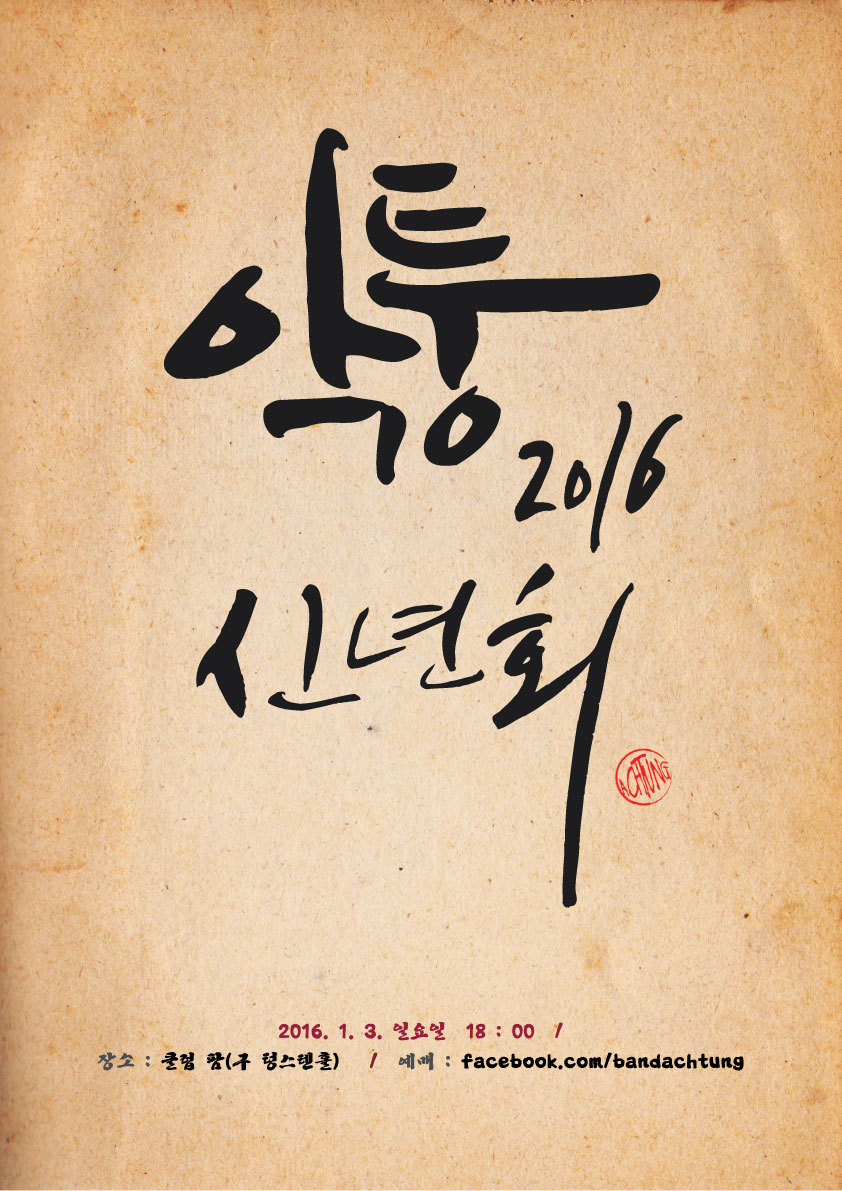 악퉁
2016
신년회
ACHTUNG
2016. 1. 3. 일요일 18 : 00 /
장소 : 클럽 팜(구 텅스텐홀) / 예매 : facebook.com/bandachtung